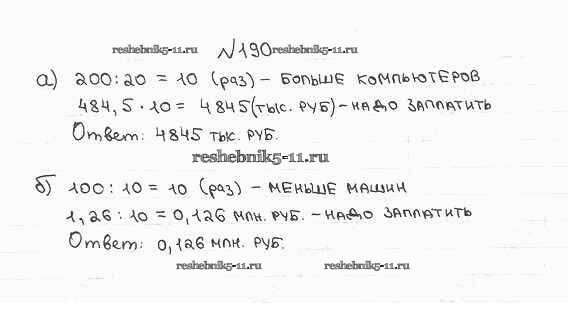 reshebnik5-11.ru №190 reshebnik5-11.ru
а) 200:20 = 10 (раз) – больше компьютеров
484,5 · 10 = 4845 (тыс. руб) – надо заплатить
Ответ: 4845 тыс. руб.
reshebnik5-11.ru
б) 100 : 10 = 10 (раз) – меньше машин
1,26 : 10 = 0,126 млн. руб. – надо заплатить
Ответ: 0,126 млн. руб.
reshebnik5-11.ru reshebnik5-11.ru